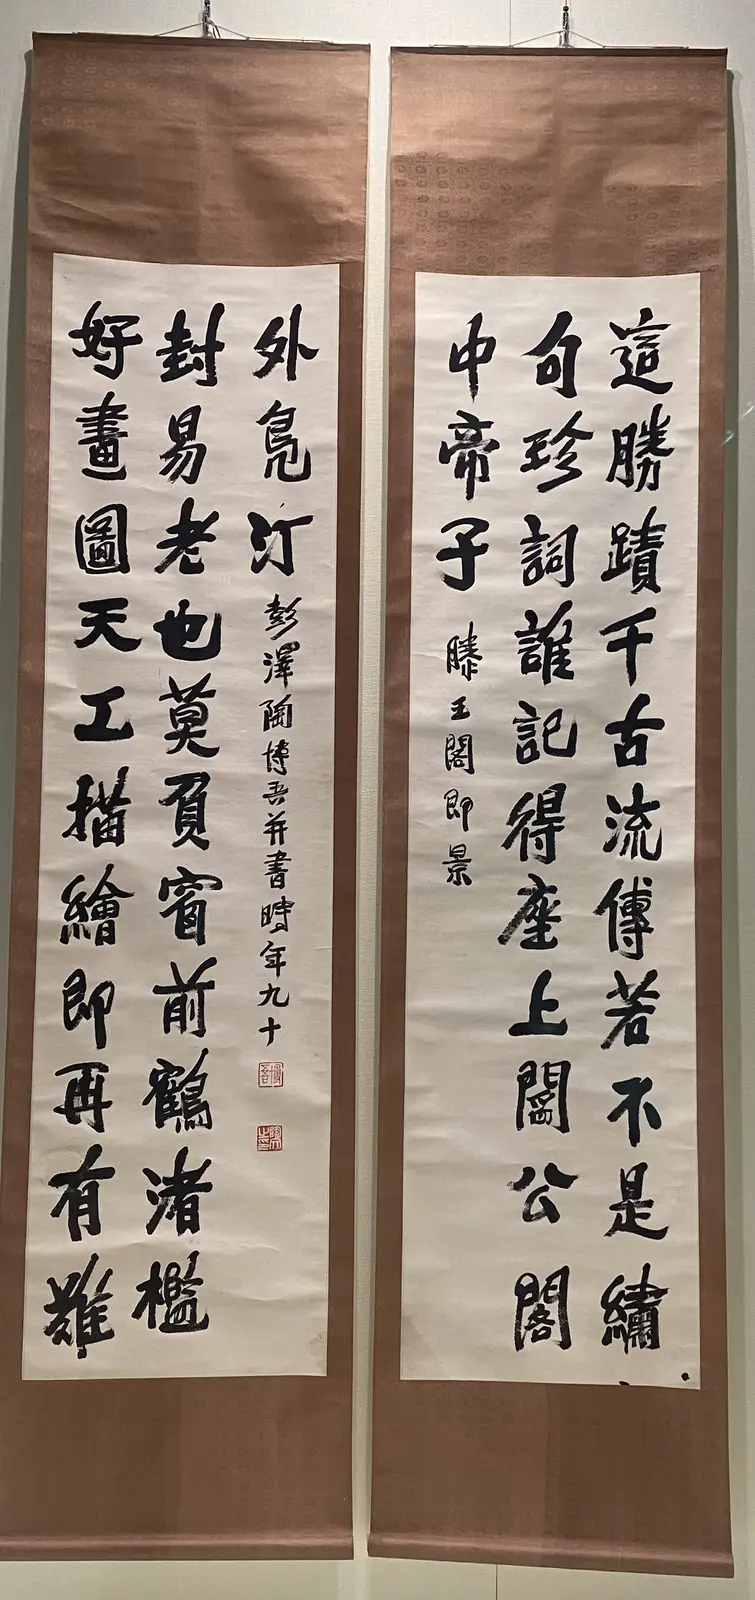 這勝蹟千古流傳若不是繡
句珍詞誰記得座上閻公閣
中帝子
滕王閣即景
好畫圖天工描繪即再有難
封易老也莫負窗前鶴渚檻
外鳧汀
彭澤陶博吾并書時年九十